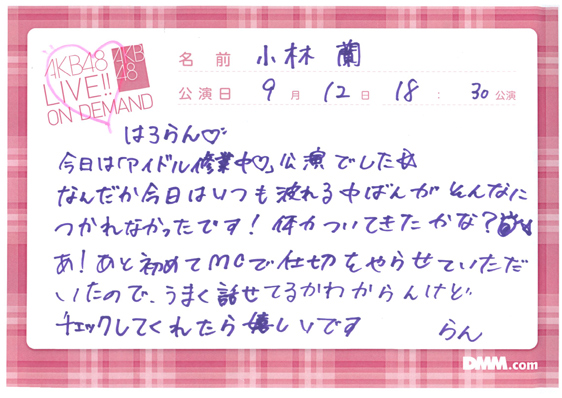 AKB48
LIVE!!
ON DEMAND
AKB
48
名前 小林 蘭
公演日 9月12日 18:30公演
はろらん♡
今日は「アイドル修業中♡」公演でした☆
なんだか今日はいつも疲れる中ばんがそんなに
つかれなかったです!体力ついてきたかな?
あ!あと初めてMCで仕切をやらせていただ
いたので、うまく話せてるかわからんけど
チェックしてくれたら嬉しいです
らん
DMM.com